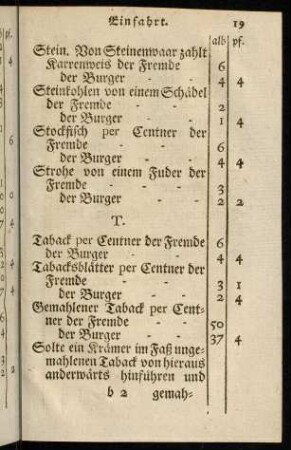 Einfahrt. 19
alb pf.
Stein. Von Steinenwaar zahlt
Karrenweis der Fremde 6
der Burger - - 4 4
Steinkohlen von einem Schädel
der Fremde - - 2
der Burger - - 1 4
Stockfisch per Centner der
Fremde - - - 6
der Burger - - 4 4
Strohe von einem Fuder der
Fremde - - - 3
der Burger - - 2 2
T.
Taback per Centner der Fremde 6
der Burger - - 4 4
Tabacksblätter per Centner der
Fremde - - - 3 1
der Burger - - 2 4
Gemahlener Taback per Cent-
ner der Fremde - - 50
der Burger - - 37 4
Solte ein Krämer im Faß unge-
mahlenen Taback von hieraus
anderwärts hinführen und
b 2 gemah-